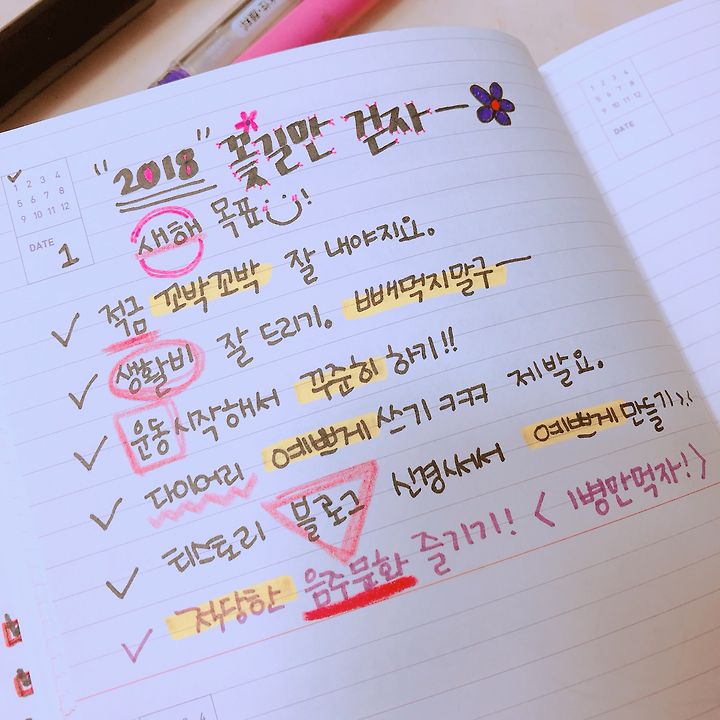 "2018" 꽃길만 걷자ー
새해 목표 !
1 2 3 4
5 6 7 8
9 10 11 12
DATE 1
적금 꼬박꼬박 잘 내야지요.
생활비 잘 드리기. 빼먹지말구ー
운동 시작해서 꾸준히 하기!!
다이어리 예쁘게 쓰기 ㅋㅋㅋ 제발요.
티스토리 블로그 신경써서 예쁘게 만들기>.<
적당한 음주문화 즐기기! < 1병만먹자!>
1 2 3 4
5 6 7 8
9 10 11 12
DATE